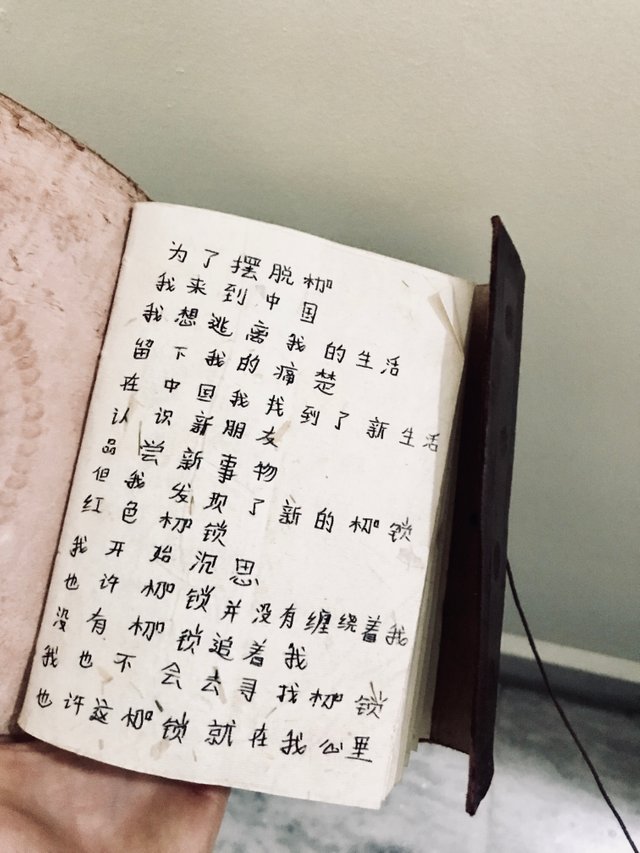 为了摆脱枷
我来到中国
我想逃离我的生活
留下我的痛楚
在中国我找到了新生活
认识新朋友
品尝新事物
但我发现了新的枷锁
红色枷锁
我开始沉思
也许枷锁并没有缠绕着我
没有枷锁追着我
我也不会去寻找枷锁
也许这枷锁就在我心里